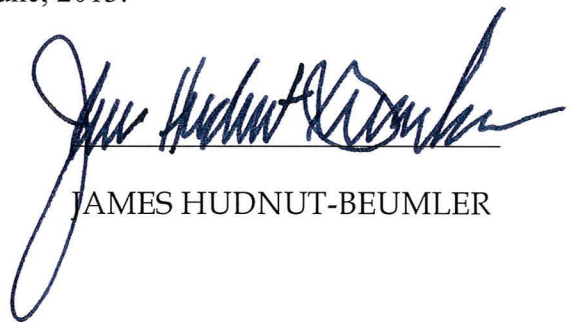 June, 2015.
James Hudnut-Beumler
JAMES HUDNUT-BEUMLER